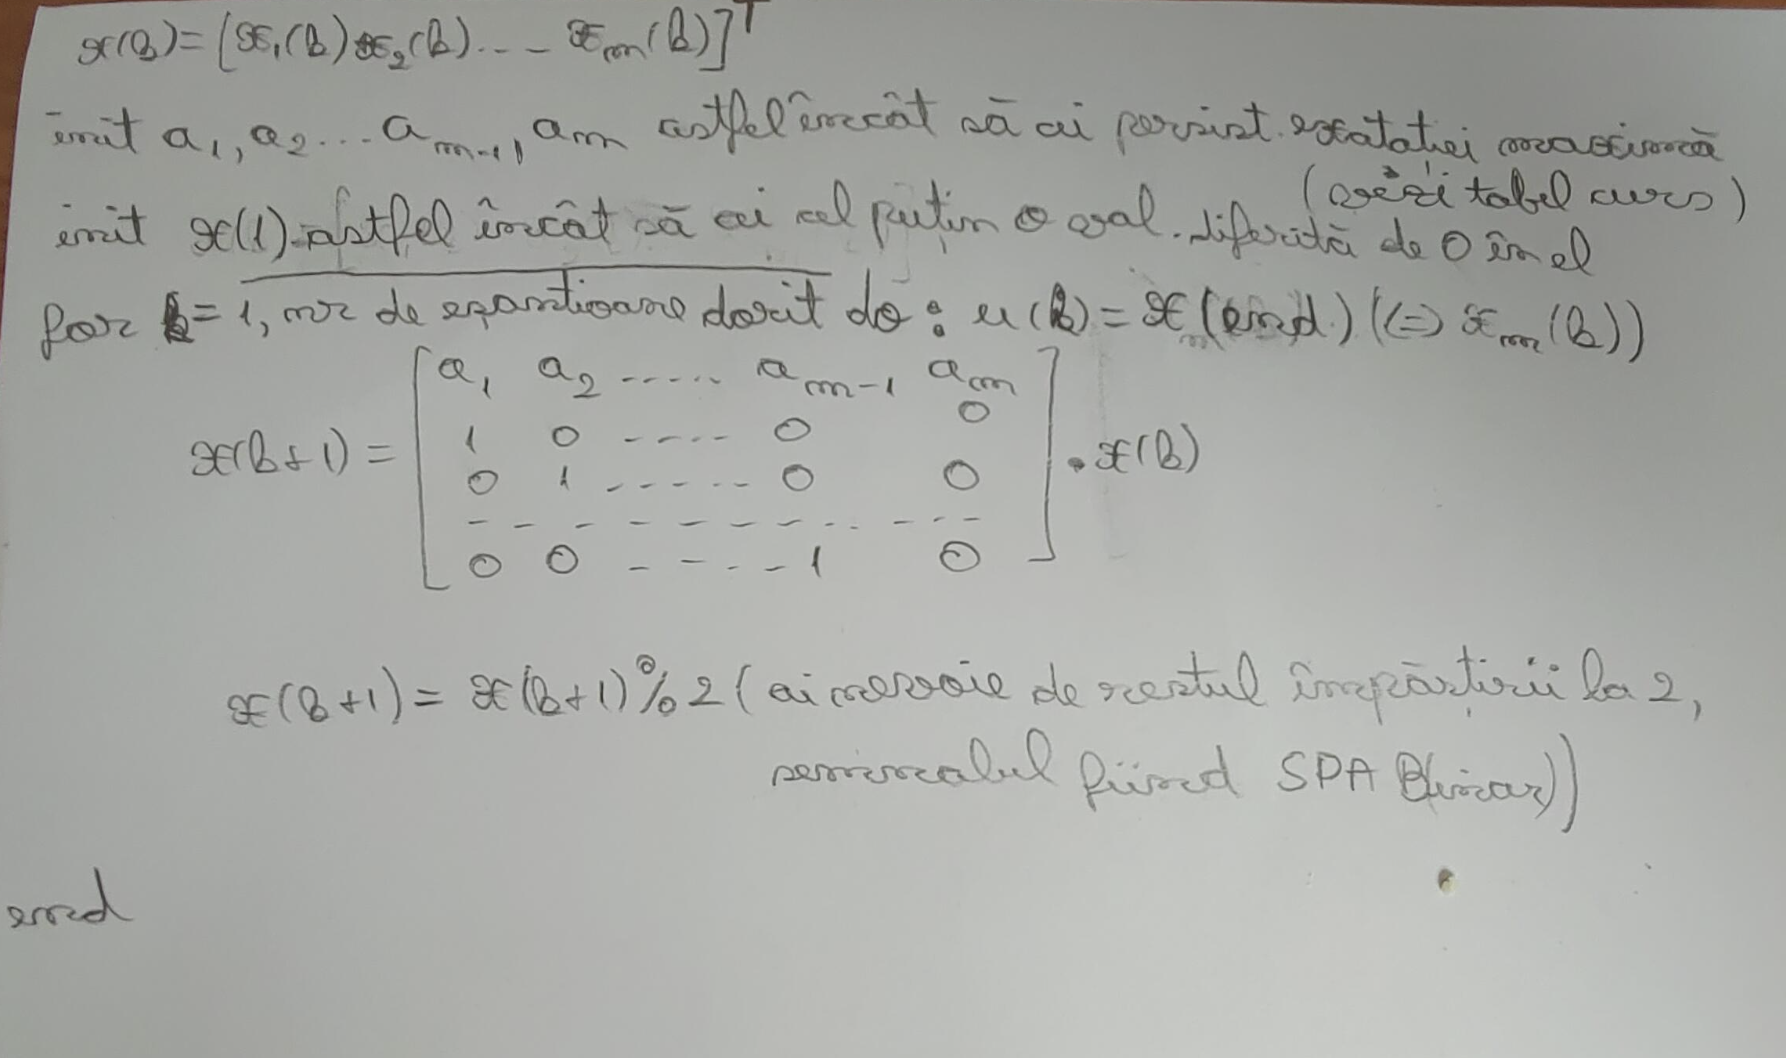 x(k)=[x₁(k) x₂(k)... xₘ(k)]ᵀ
init a₁, a₂... aₘ₋₁, aₘ astfel încât să ai persist. excitației maximă
(vezi tabel curs)
init x(1) astfel încât să ai cel puțin o val. diferită de 0 în el
for k=1, nr de eșantioane dorit do: u(k)=x(end) (⇔ xₘ(k))
x(k+1) = [a₁ a₂ ..... aₘ₋₁ aₘ
1 0 ----- 0 0
0 1 ------ 0 0
- - - - - - - - - - -
0 0 - - - - 1 0] · x(k)
x(k+1)= x(k+1)%2 (ai nevoie de restul împărțirii la 2,
semnalul fiind SPA B(inar))
end